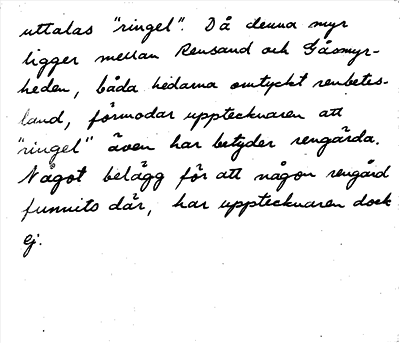 uttalas "ringel". Då denna myr
ligger mellan Rensand och Gåsmyr-
heden, båda hedarna omtyckt renbetes-
land, förmodar upptecknaren att
"ringel" även har betyder rengärda.
Något belägg för att någon rengärd
funnits där, har upptecknaren dock
ej.